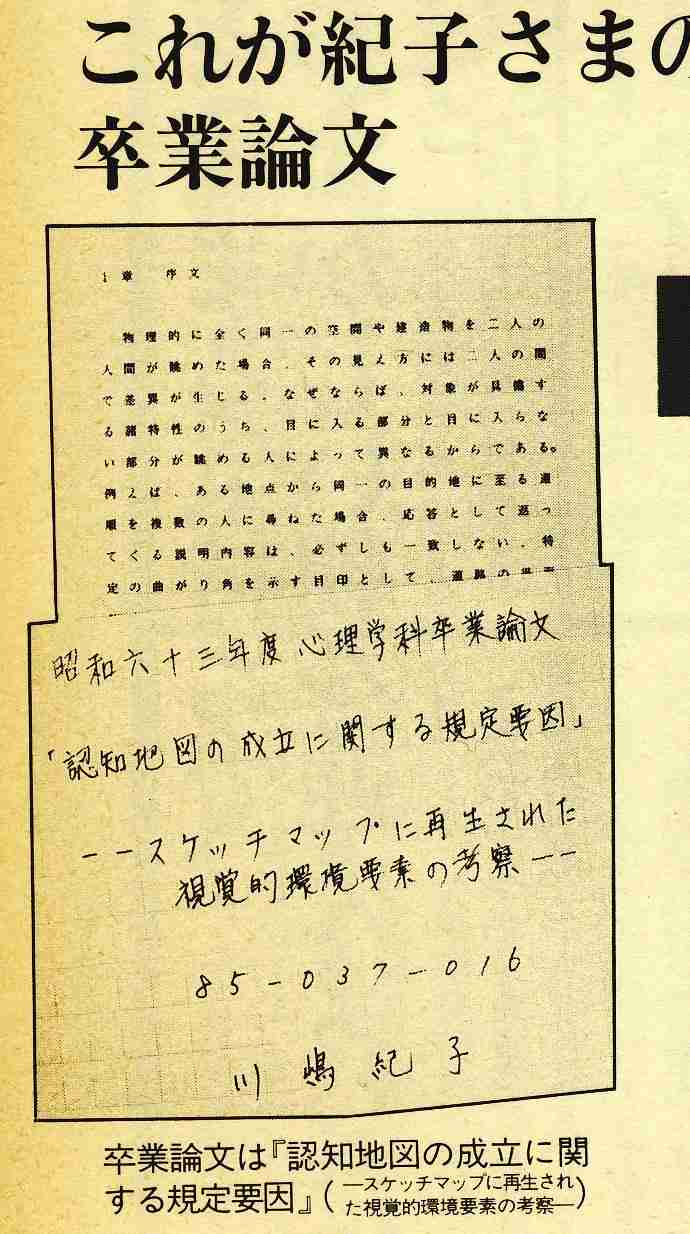 これが紀子さまの
卒業論文
1章 序文
物理的に全く同一の空間や建造物を二人の
人間が眺めた場合、その見え方には二人の間
で差異が生じる。なぜならば、対象が具備す
る諸特性のうち、目に入る部分と目に入らな
い部分が眺める人によって異なるからである。
例えば、ある地点から同一の目的地に至る道
順を複数の人に尋ねた場合、応答として返っ
てくる説明内容は、必ずしも一致しない。特
定の曲がり角を示す目印として、道路の
昭和六十三年度 心理学科卒業論文
「認知地図の成立に関する規定要因」
――スケッチマップに再生された
視覚的環境要素の考察――
85-037-016
川嶋紀子
卒業論文は『認知地図の成立に関
する規定要因』(―スケッチマップに再生され
た視覚的環境要素の考察―)